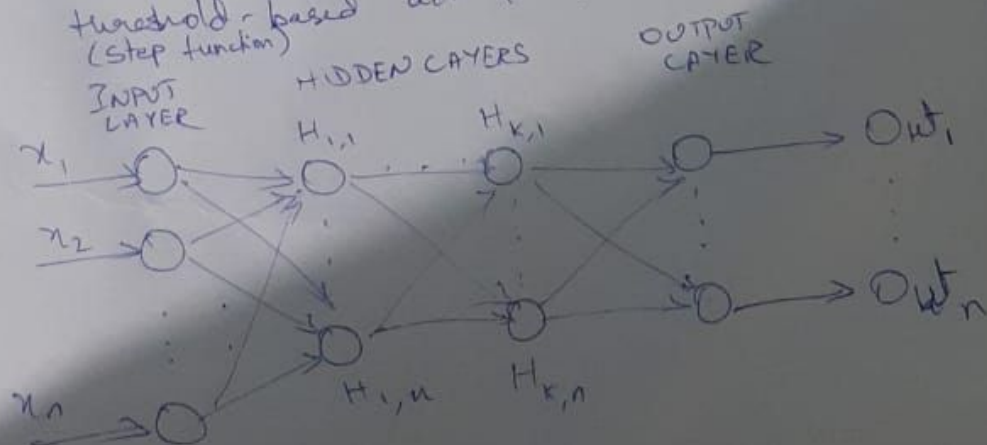 threshold-based
(Step function)
INPUT
LAYER
HIDDEN LAYERS
OUTPUT
LAYER
x₁
H₁,₁
H_k,₁
Out₁
x₂
Out_n
x_n
H₁,n
H_k,n